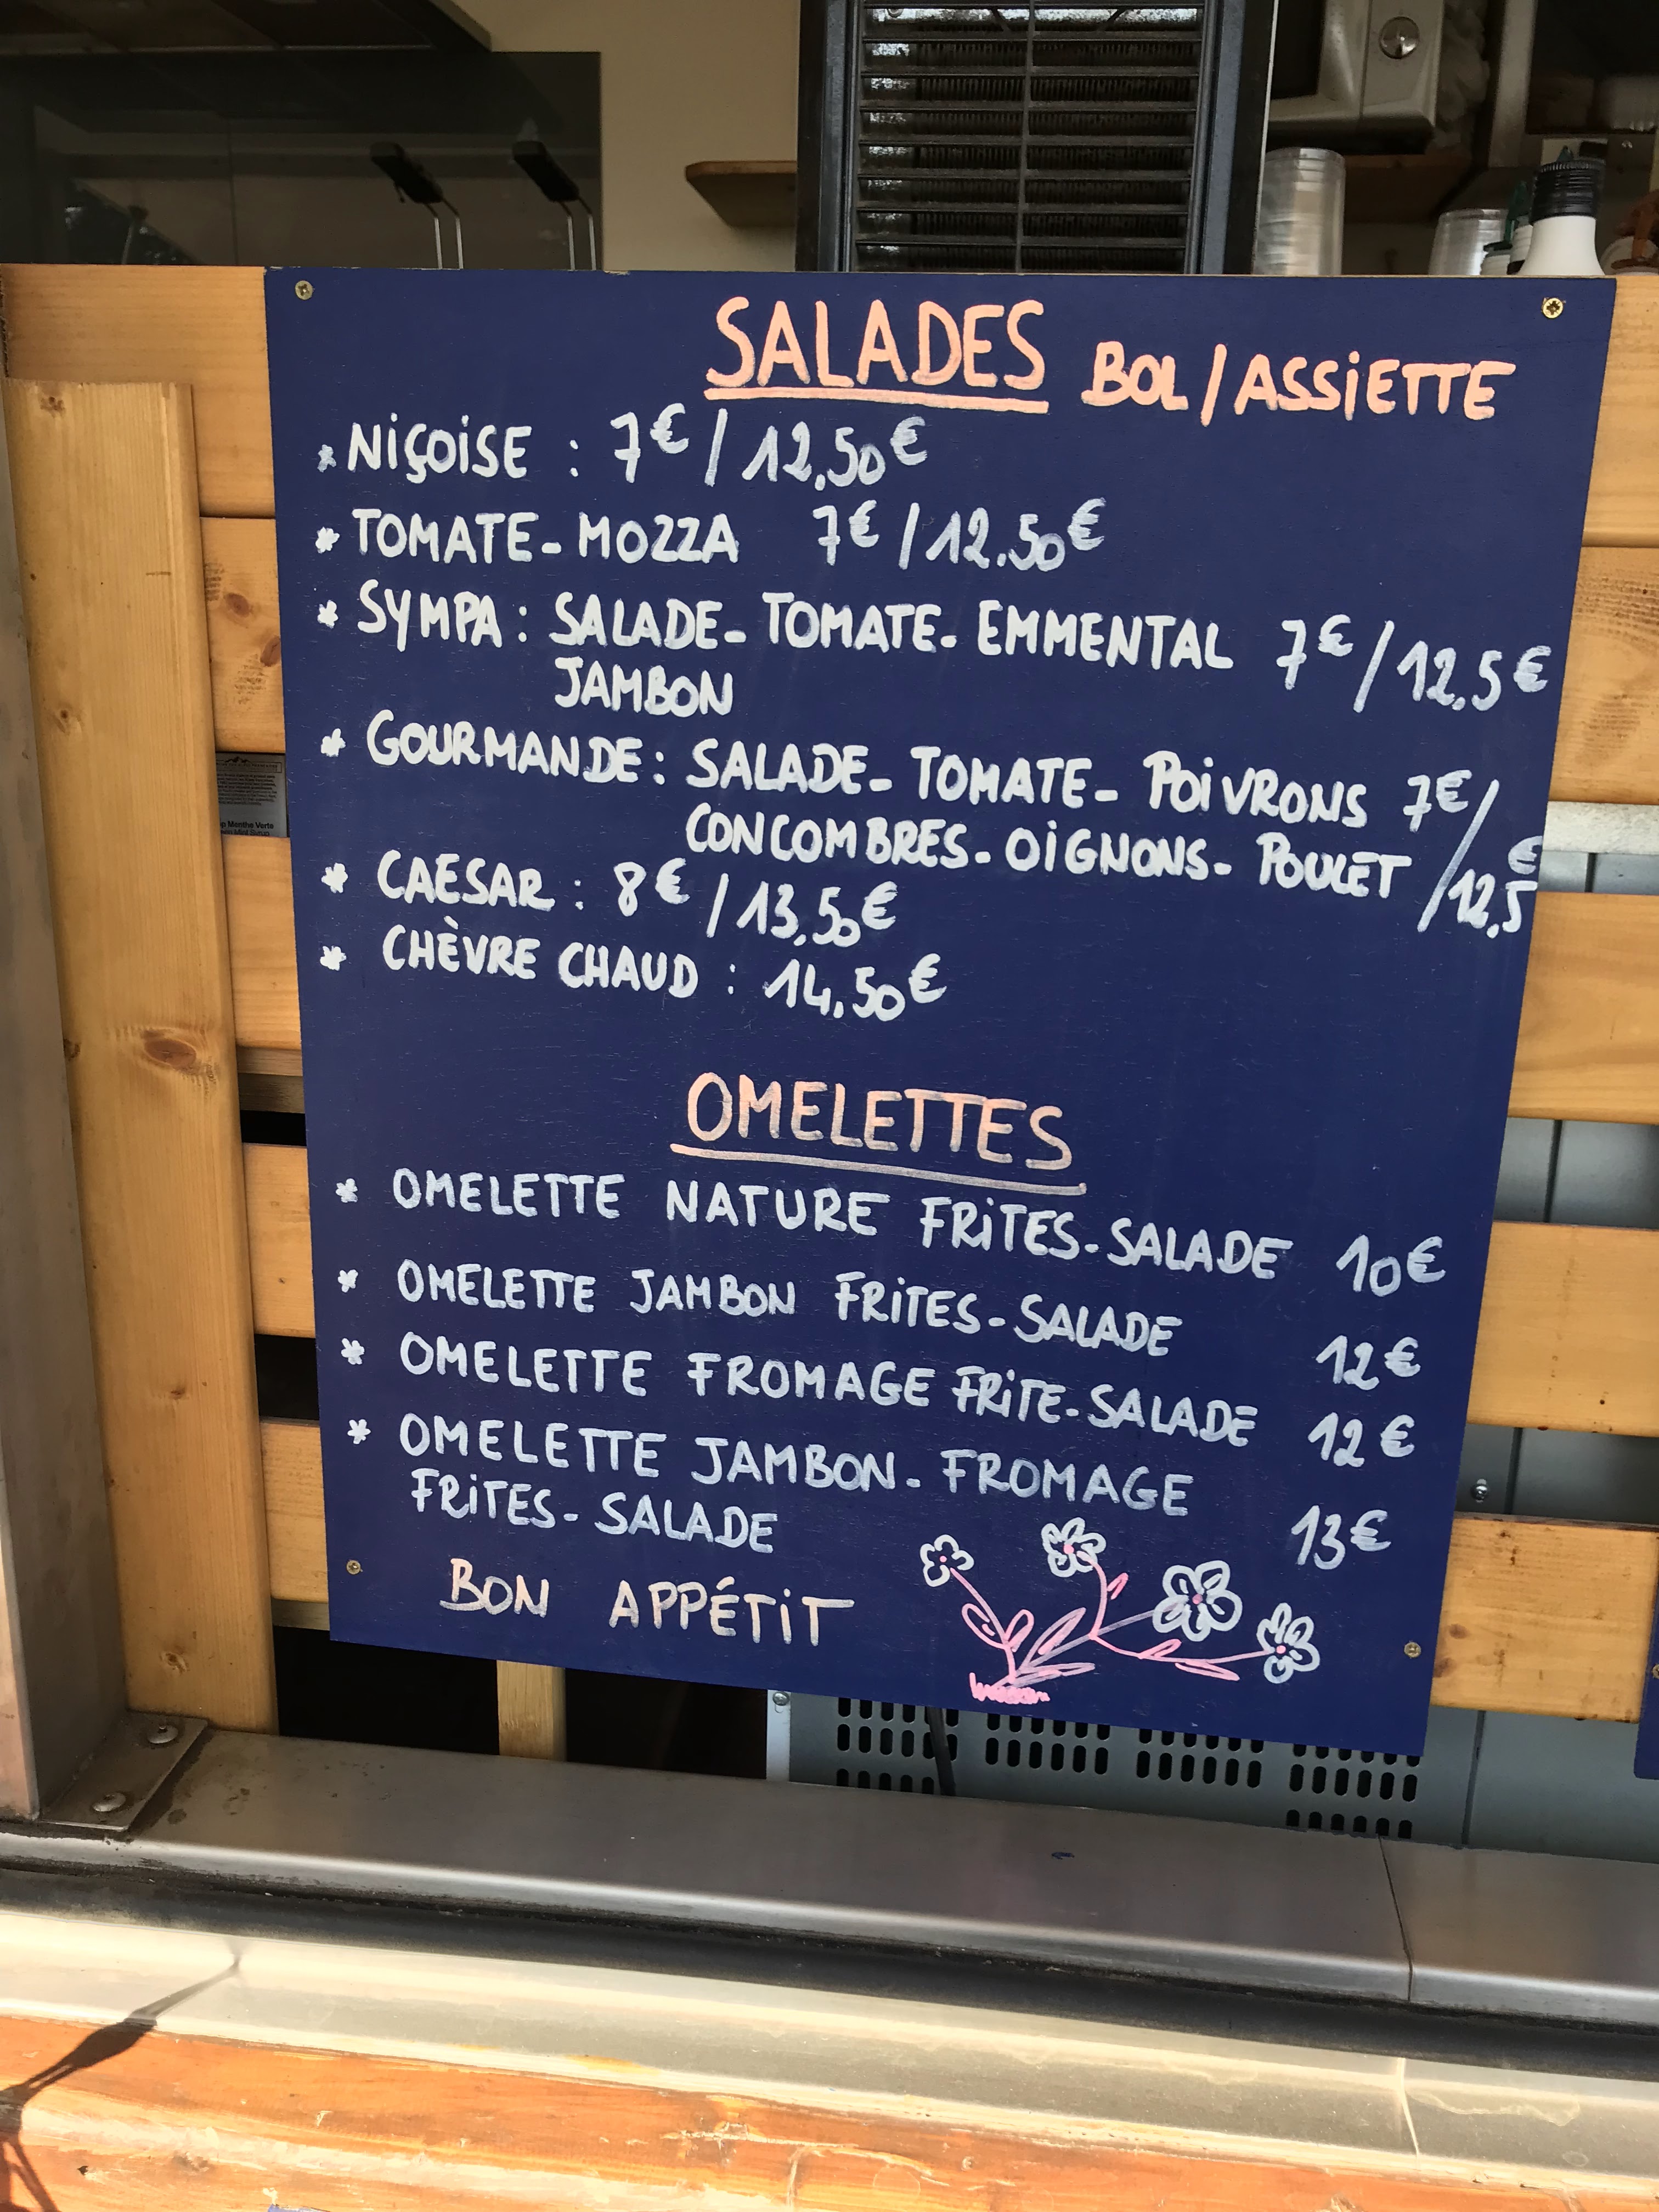 SALADES BOL/ASSIETTE
* NIÇOISE : 7€ / 12,50€
* TOMATE-MOZZA 7€ / 12.50€
* SYMPA : SALADE-TOMATE-EMMENTAL 7€ / 12,5€
JAMBON
* GOURMANDE : SALADE-TOMATE-POIVRONS 7€ /
CONCOMBRES-OIGNONS-POULET / 12,5€
* CAESAR : 8€ / 13,50€
* CHÈVRE CHAUD : 14,50€
OMELETTES
* OMELETTE NATURE FRITES-SALADE 10€
* OMELETTE JAMBON FRITES-SALADE 12€
* OMELETTE FROMAGE FRITE-SALADE 12€
* OMELETTE JAMBON-FROMAGE 13€
FRITES-SALADE
BON APPÉTIT
Menthe Verte
Mint Syrup